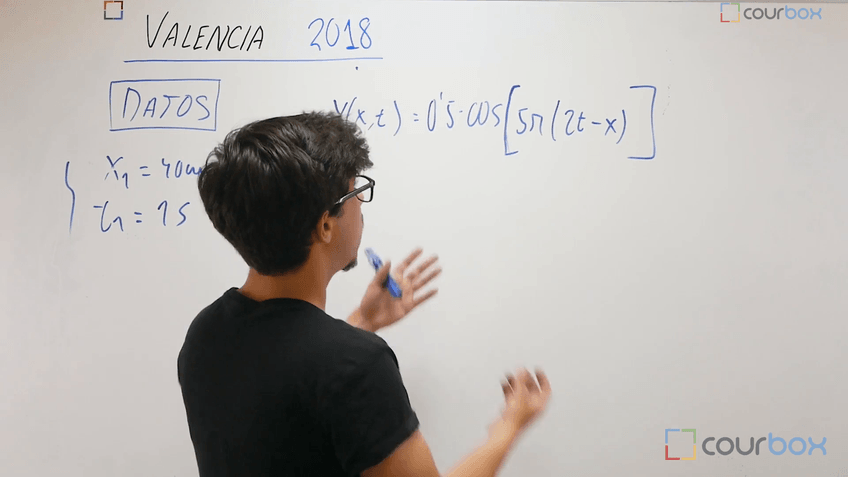 courbox
VALENCIA 2018
DATOS
y(x,t) = 0'5·cos[5π(2t-x)]
x₁ = 40cm
t₁ = 1s
courbox